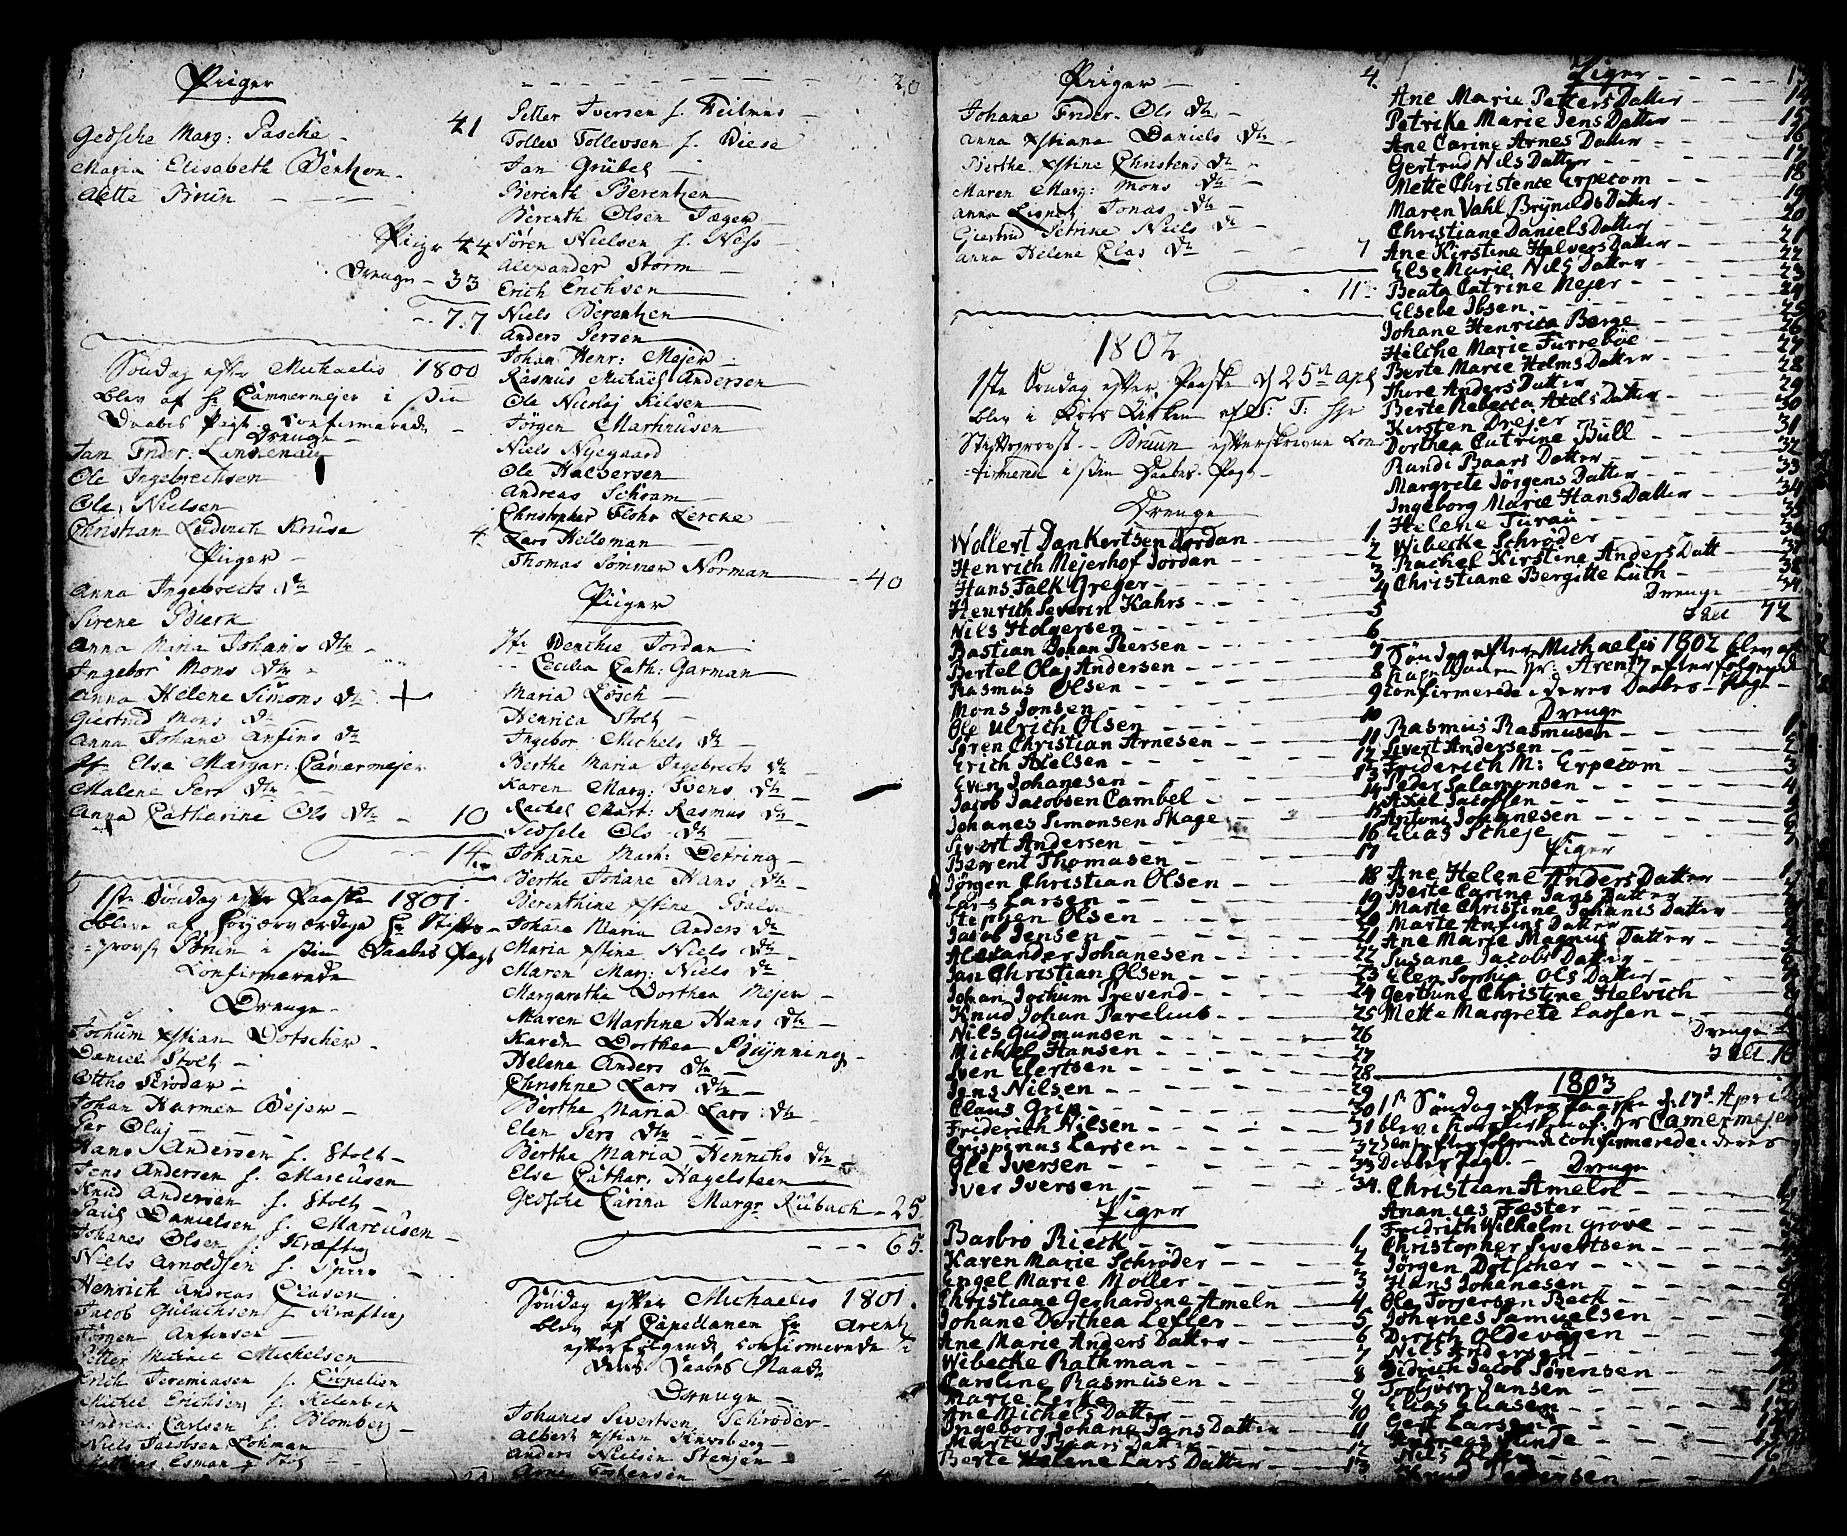 Piiger
Gedsche Marg: Pasche - 41
Maria Elisabeth Bentzon -
Aette Bruun - - - -
Piigr 44
Drenge - 33
- - 77
Søndag efter Michaelis 1800
blev af Hr Cammermejer i sin
Daabes Pagt confirmerede -
Drenge -
Jan Frider: Lindenau
Ole Ingebrechtsen
Ole Nielsen
Christian Ledvich Kruse 4
Piiger -
Anna Ingebrects Dtr
Sirene Bierk
Anna Maria Johanis Dtr -
Ingebor Mons Dtr -
Anna Helene Simons Dtr +
Giertrud Mons Dtr -
Anna Johane Anfins Dtr
Jfr Else Margar: Camermejer
Malene Pers Dtr -
Anna Catharine Ols Dtr - 10
14
1ste Søndag efter Paaske 1801.
bleve af Høyærværdige Hr Stifts-
-provst Bruun i sin Daabes Pagt
Confirmerede
Drenge -
Jochum xstian Dotscher -
Daniel Stolt -
Ottho Skrøder -
Johan Harmen Bejer -
Per Olaj - - -
Hans Andersen f. Stolt -
Jens Andersen f. Marcusen
Knud Andersen f. Stolt -
Paul Danielsen f. Marcusen -
Johanes Olsen f. Kræftig
Niels Arnoldsen f.
Henrich Andreas Clasen
Jacob Gulachsen f. Kræftig
Jørgen Anfinsen -
Petter Michael Michelsen
Erich Jeremiasen f. Cornelien
Michel Erichsen f.
Andreas Carlsen f. Blomberg -
Niels Jacobsen Lohman
Mathias Esman f. Stolt
- - - - 20
Petter Iversen f. -
Tollev Tollevsen f. Wiese
Jan Grübel -
Berenth Berentzen
Berenth Olsen Jæger -
Søren Nielsen f. Ness
Alexander Storm -
Erich Erichsen
Niels Berentzen
Anders Persen
Johan Henr: Mejer -
Rasmus Michael Andersen
Ole Nicolaj Nilsen
Jørgen Marthinusen
Niels Nyegaard
Ole Halversen
Andreas Schram -
Christopher Flohr Lercke -
Lars Heltzman -
Thomas Sommer Norman - 40
Piiger
Jfr Wenchie Jordan
- - Cecilia Cath: Garman
Maria Løsch -
Henrica Stolt -
Ingebor Michels Dtr -
Berthe Maria Ingebrects Dtr
Karen Marg: Svens Dtr -
Rachel Mart: Rasmus Dtr -
Sedsele Ols Dtr
Johane Mark: Detring -
Berthe Johane Hans Dtr -
Berenthine xstine
Johane Maria Anders Dtr
Maria xstine Niels Dtr -
Maren Marg: Niels Dtr
Margaretha Dorthea Mejer -
Maren Martine Hans Dtr -
Karen Dorthea Brynning -
Helene Anders Dtr -
Christine Lars Dtr -
Birthe Maria Lars Dtr
Elen Pers Dtr - -
Birthe Maria Henrichs Dtr -
Else Cathar: Hagelsteen -
Gedsche Carina Margr Rübach - 25
- - - 65
Søndag efter Michaelis 1801.
blev af Capellanen Hr Arentz
efterfølgende confirmerede i
deres Daabes Naade
Drenge -
Johanes Sivertsen Schrøder -
Albert xstian -
Anders Nielsen Stenjen -
Arne Tostensen - - - 4
Piiger - 4.
Johane Frider. Ols Dtr
Anna xstiana Daniels Dtr
Birthe xstine Christens Dtr -
Maren Marg: Mons Dtr -
Anna Lisbet Jonas Dtr -
Giertrud Petrine Niels Dtr -
Anna Helene Clas Dtr - 7
11
1802
1ste Søndag efter Paaske d 25de April
blev i Kors Kirken af S: T: Hr
Stiftsprovst - Bruun efterskrevne Con-
-firmered i sin Daabes Pagt -
Drenge
Wollert DanKertsen Jordan 1
Henrich Mejerhof Jordan - 2
Hans Falk Greger - 3
Henrich Severin Kahrs - - 4
Nils Holgersen - - - 5
Bastian Johan Iversen - - 6
Bertel Olaj Andersen - - 7
Rasmus Olsen - - - 8
Mons Jonsen - - - 9
Ole Ulrich Olsen - - - 10
Søren Christian Arnesen - - - 11
Erich Axelsen - - - 12
Even Johanesen - - - 13
Jacob Jacobsen Cambel - - - 14
Johanes Simonsen Skage - - - 15
Sivert Andersen - - - 16
Berent Thomasen - - - 17
Jørgen Christian Olsen - - - 18
Lars Larsen - - - 19
Stephen Olsen - - - 20
Jacob Jensen - - - 21
Alexander Johanesen - - - 22
Jan Christian Olsen - - - 23
Johan Jochum Prevend - - - 24
Knud Johan Parelius - - - 25
Nils Gudmunsen - - - 26
Michel Hansen - - - 27
Sven Gertsen - - - 28
Jens Nilsen - - - 29
Claus Grip - - - 30
Friderich Nilsen - - - 31
Crispinus Larsen - - - 32
Ole Iversen - - - 33
Iver Iversen - - - 34.
Piger
Barbro Rieck - - - 1
Karen Marie Schrøder - - - 2
Engel Marie Moller - - - 3
Christiane Gerhardine Ameln - 4
Johane Dorthea Lexler - - - 5
Ane Marie Anders Datter - - - 6
Wibecke Rathman - - - 7
Caroline Rasmusen - - - 8
Marie Lerke - - - 9
Ane Michels Datter - - - 10
Ingeborg Johane Jans Datter - - - 11
Marte Baars Datter - - - 12
Berte Helene Lars Datter - - - 13
Piger - - - 13
Ane Marie Petters Datter - - - 14
Petrike Marie Jens Datter - - - 15
Ane Carine Arnes Datter - - - 16
Gertrud Nils Datter - - - 17
Mette Christence Erpecom - - - 18
Maren Vahl Brynilds Datter - - - 19
Christiane Daniels Datter - - - 20
Ane Kirstine Halvers Datter - - - 21
Else Marie Nils Datter - - - 22
Beata Catrine Mejer - - - 23
Elsebe Ibsen - - - 24
Johane Henrica Berge - - - 25
Hilche Marie Furreboe - - - 26
Berte Marie Holms Datter - - - 27
Thore Anders Datter - - - 28
Berte Rebecca Axels Datter - - - 29
Kirsten Drejer - - - 30
Dorthea Cutrine Bull - - - 31
Randi Baars Datter - - - 32
Margrete Jørgens Datter - - - 33
Ingeborg Marie Hans Datter - - - 34
Helene Turau - - - 35
Wibecke Schrøder - - - 36
Rachel Kirstine Anders Datt - - - 37
Christiane Bergitte Luth - - - 38
Drenge - 34
I alt 72
Søndag efter Michaelis 1802 blev af
Capellanen Hr. Arentz efterfølgende
confirmerede i deres Daabes-Pagt -
Drenge
Rasmus Rasmusen - - 1
Sivert Andersen - - - 2
Friderich M: Erpecom - - - 3
Peder Salamonsen - - - 4
Axel Jacobsen - - - 5
Antoni Johannesen - - - 6
Elias Scheje - - - 7
Piger
Ane Helene Anders Datter - - - 1
Berte Carina Jans Datter - - - 2
Marte Christine Johanis Datter
Marte Anfins Datter
Ane Marie Magnus Datter - - -
Susane Jacobs Datter
Elen Sophia Ols Datter - - -
Gerthune Christine Helvich 8
Mette Margrete Larsen - - -
Drenge
I alt. 16
1803
1ste Søndag efter Paaske d. 17de April
blev i Korskirken af Hr Camermejer
Sen: efterfølgende confirmerede i deres
Daabes Pagt. -
Drenge
Christian Ameln - - - 1
Ananias Fæster - - - 2
Fridrich Wilhelm Grove - - -
Christopher Sivertsen - - -
Jørgen Dotscher - - -
Hans Johanesen - - -
Ole Torgersen Beck - - -
Johanes Samuelsen - - -
Dirich Oldevagen - - -
Nils Andersen - - -
Didrich Jacob Sørensen - - -
Torbjørn Jansen - - -
Elias Eliasen - - -
Gert Larsen - - -
Andreas Hinde - - -
Nils - - - 16
Knud Pedersen - - - 17